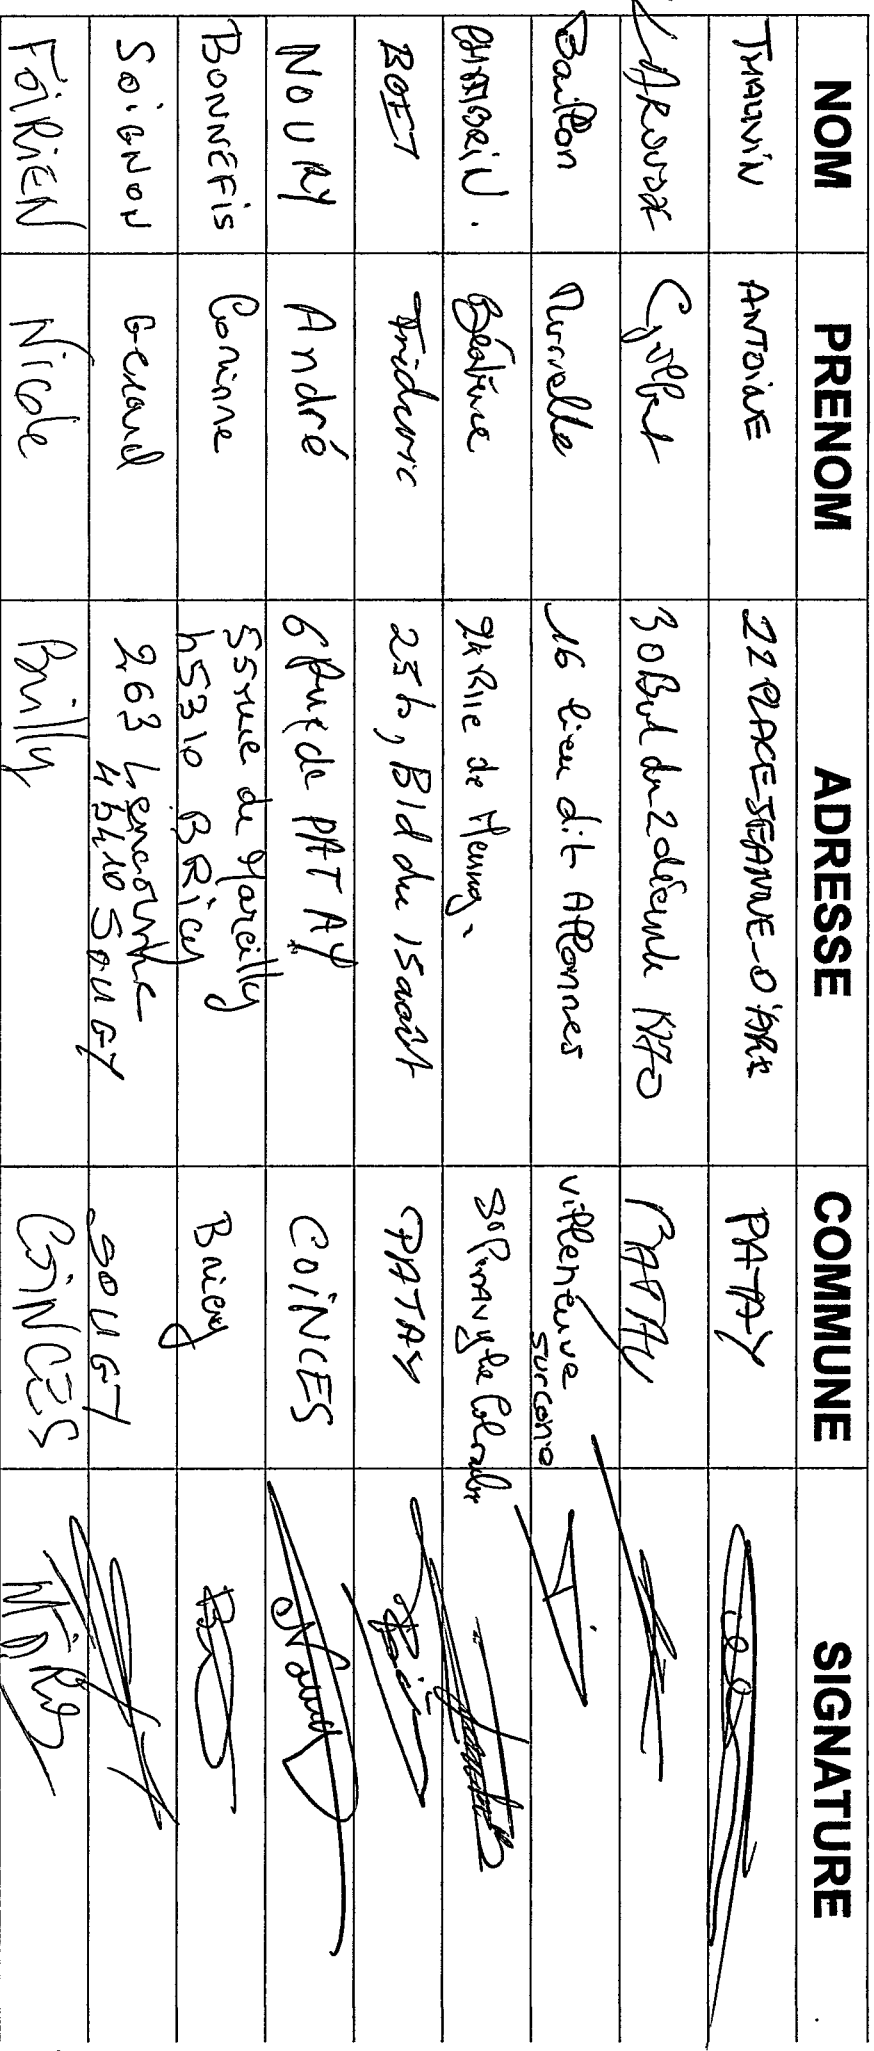 NOM PRENOM ADRESSE COMMUNE SIGNATURE
THAUVIN ANTOINE 22 PLACE JEANNE-D'ARC PATAY
LAROUSSE Gilbert 30 Bvd du 2 décembre 1870 PATAY
Baillon Murielle 16 lieu dit Allonnes villeneuve
sur conie
CHAMBRIN. Béatrice Rue de Meung. St Peravy la Colombe
BOET Frédéric 25 b, Bld du 15 août PATAY
NOURY André 6 Rue de PATAY COINCES
BONNEFIS Corinne 55 rue de Marcilly Bricy
45310 BRicy
SOIGNON Gerard 263 45410 SOUGY SOUGY
FOIRIEN Nicole Brilly COINCES